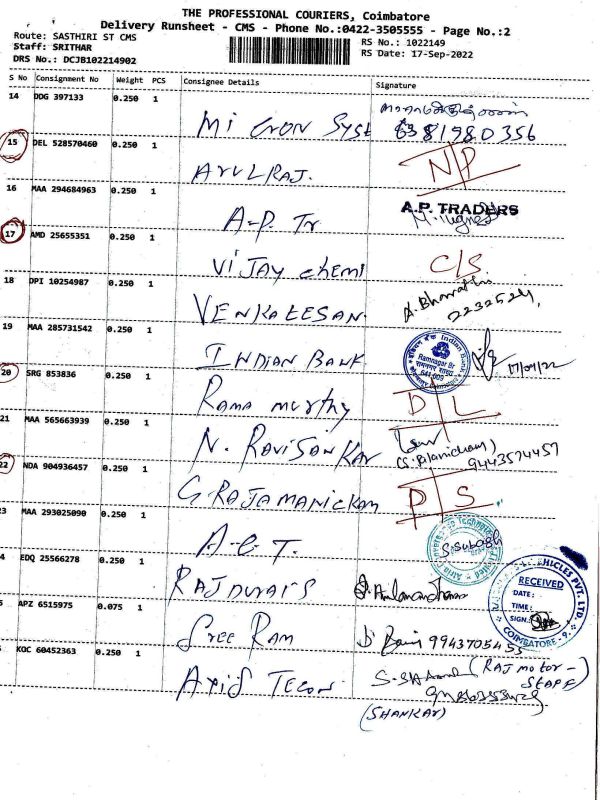 THE PROFESSIONAL COURIERS, Coimbatore
Delivery Runsheet - CMS - Phone No.:0422-3505555 - Page No.:2
Route: SASTHIRI ST CMS
RS No.: 1022149
Staff: SRITHAR
RS Date: 17-Sep-2022
DRS No.: DCJB102214902
S No Consignment No Weight PCS Consignee Details Signature
14 DDG 397133 0.250 1
Micron Syst 6381980356
15 DEL 528570460 0.250 1
ARULRAJ. NP
16 MAA 294684963 0.250 1
A-P. Tr A.P. TRADERS
17 AMD 25655351 0.250 1
Vijay chemi C/S
18 DPI 10254987 0.250 1
VENKATESAN. A. Bharathi
2232524,
19 MAA 285731542 0.250 1
INDIAN BANK Indian Bank
Ramnagar Br
641 009
20 SRG 853836 0.250 1
Rama murthy D L
21 MAA 565663939 0.250 1
N. RaviSankar (S. Palanicham)
9443574457
22 NDA 904936457 0.250 1
G RAJAMANICKAM D S
23 MAA 293025090 0.250 1
A-C T. S. Subash
24 EDQ 25566278 0.250 1
RAJDURAIS
RECEIVED
DATE:
TIME:
SIGN.:
VEHICLES PVT. LTD.
COIMBATORE - 9.
APZ 6515975 0.075 1
Sree Ram 9943705455
KOC 60452363 0.250 1
Axis Tecon (RAJ motor -
STAFF)
(SHANKAR)